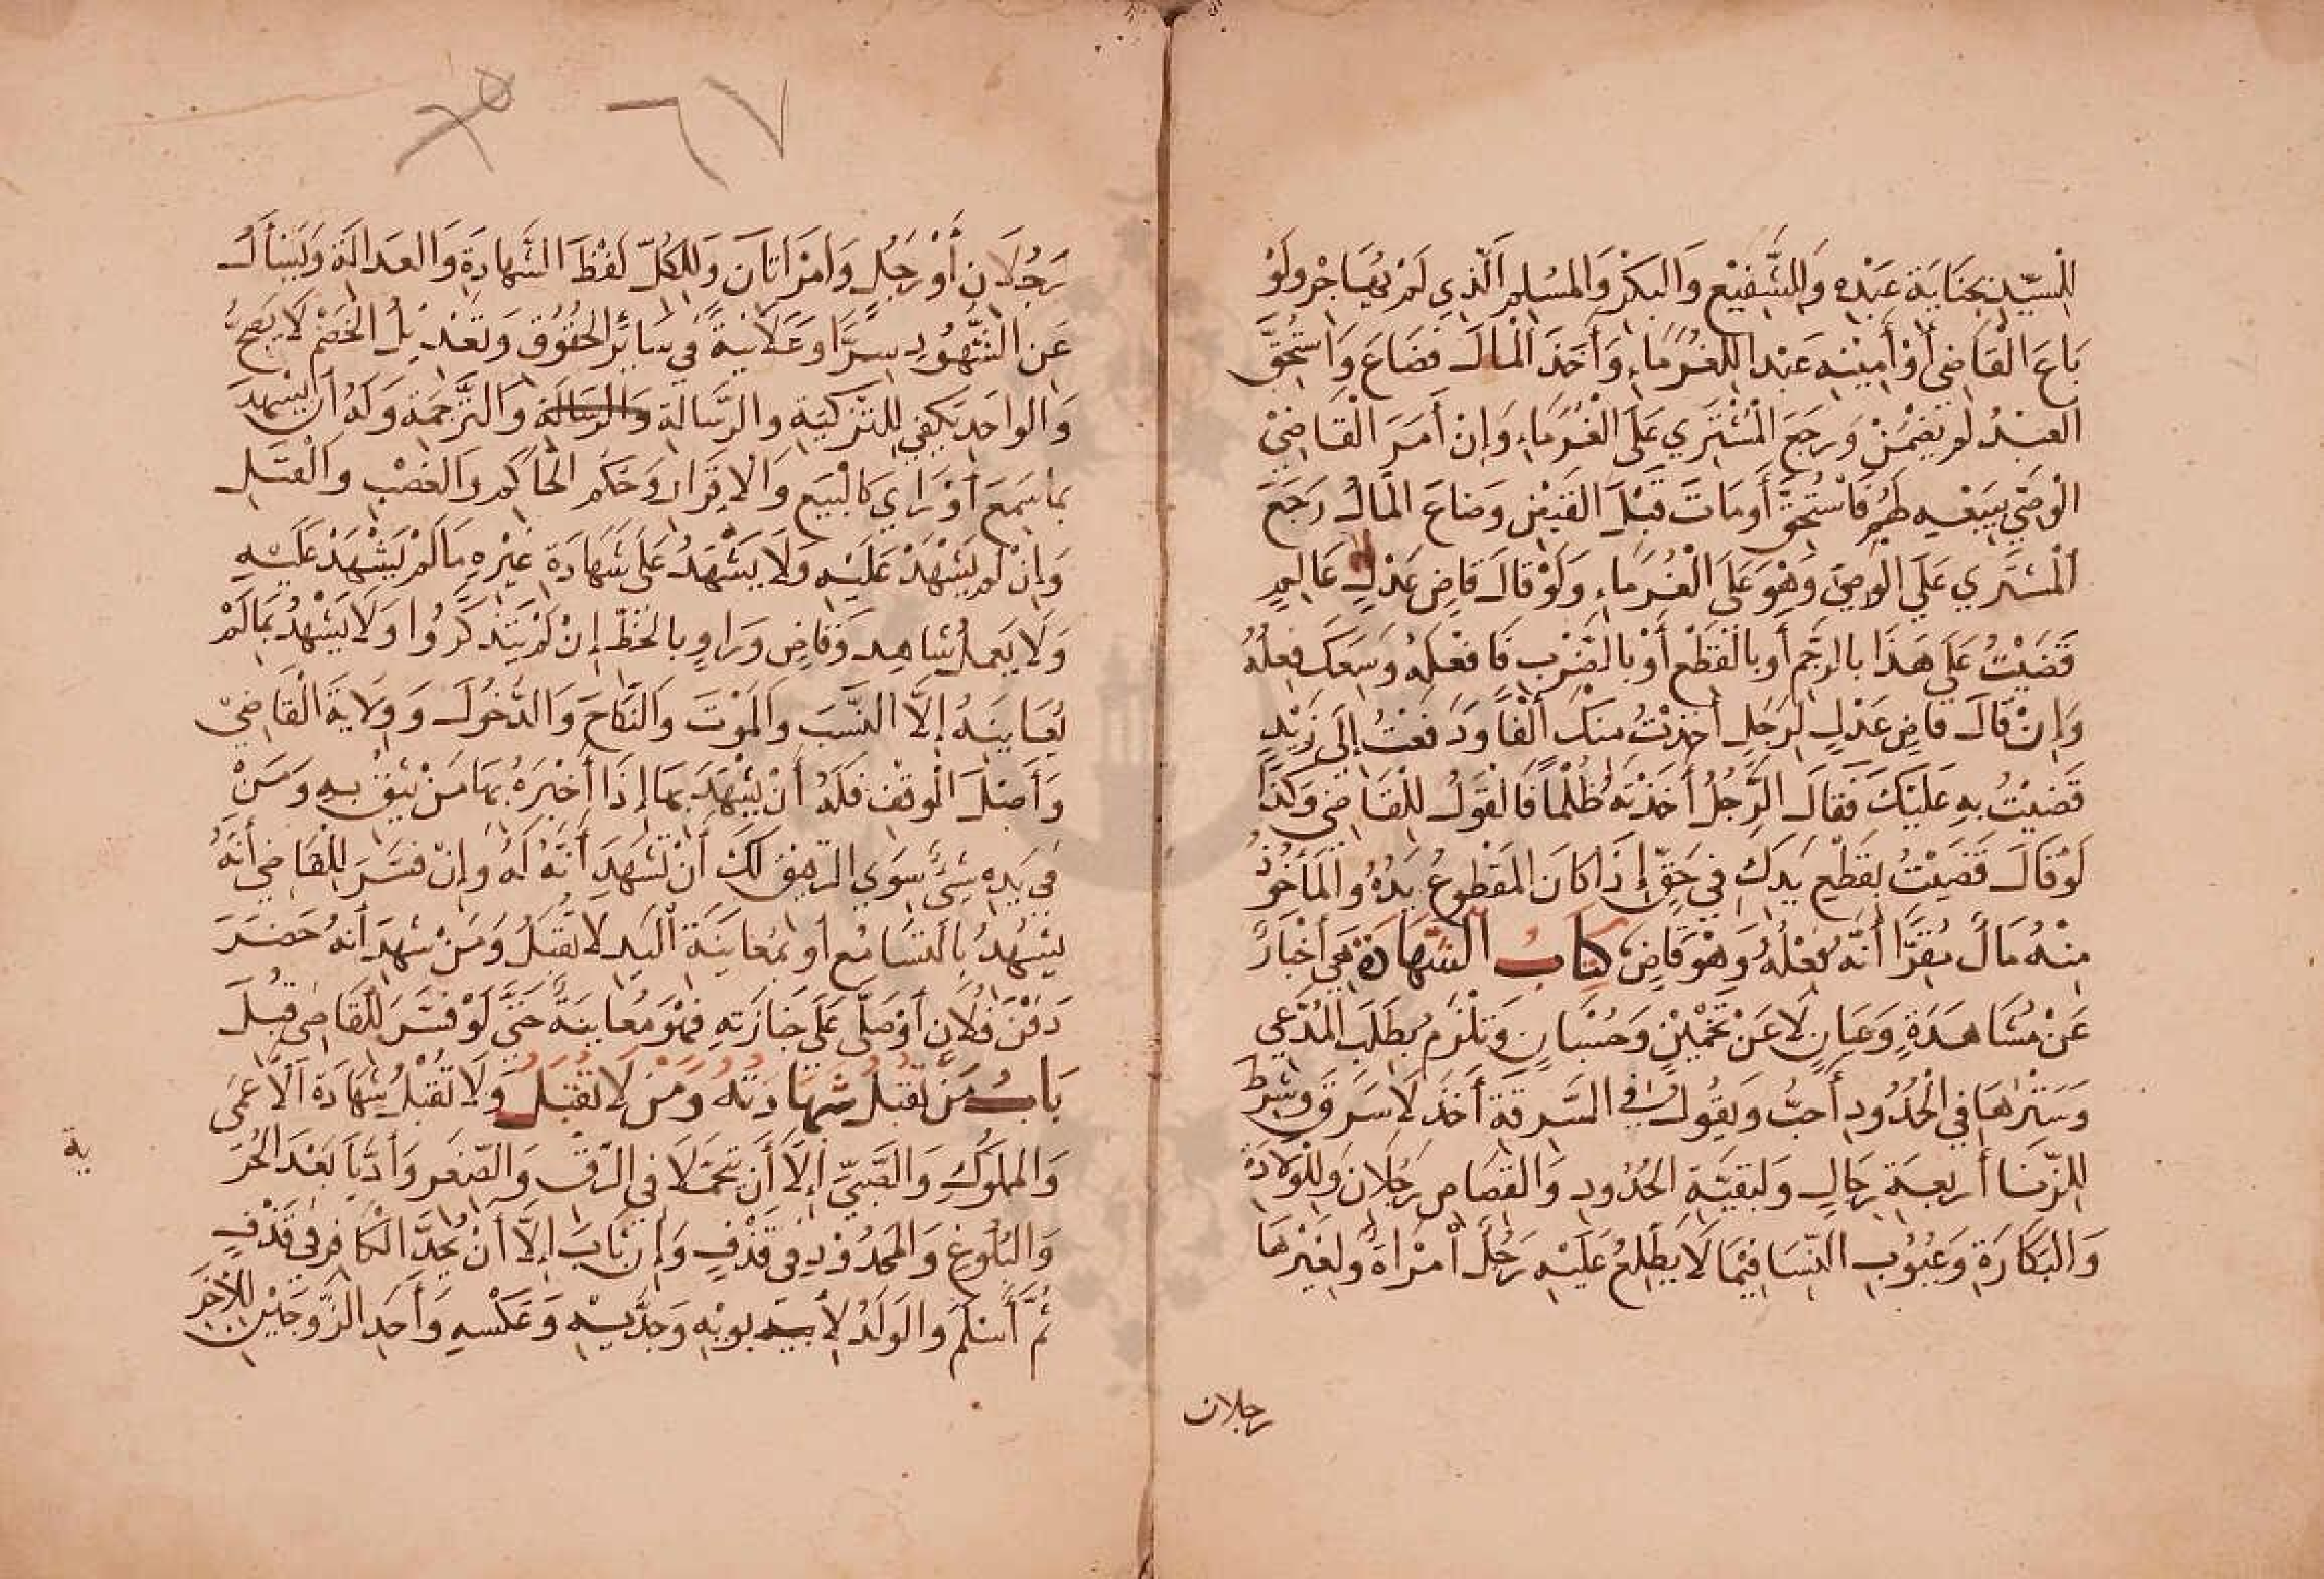 للسيد بجناية عبده وللشفيع والبكر والمسلم الذي لم يهاجر ولو
باع القاضي أو أمينه عبدا للغرماء وأخذ المال فضاع واستحق
العبد لم يضمن ورجع المشتري على الغرماء وإن أمر القاضي
الوصي ببيعه لهم فاستحق أو مات قبل القبض وضاع المال رجع
المشتري على الوصي وهو على الغرماء ولو قال قاض عدل عالم
قضيت على هذا بالرجم أو بالقطع أو بالضرب فافعله وسعك فعله
وإن قال قاض عدل لرجل أخذت منك ألفا ودفعت إلى زيد
قضيت به عليك فقال الرجل أخذته ظلما فالقول للقاضي وكذا
لو قال قضيت بقطع يدك في حق إذا كان المقطوع يده والمأخوذ
منه مال مقرا أنه فعله وهو قاض كتاب الشهادة هي أخبار
عن مشاهدة وعيان لا عن تخمين وحسبان وتلزم بطلب المدعي
وسترها في الحدود أحب ويقول في السرقة أخذ لا سرق وشرط
للزنا أربعة رجال ولبقية الحدود والقصاص رجلان وللولادة
والبكارة وعيوب النسا فيما لا يطلع عليه رجل امرأة ولغيرها
رجلان
٦٧
رجلان أو رجل وامرأتان وللكل لفظ الشهادة والعدالة ويسأل
عن الشهود سرا وعلانية في سائر الحقوق وتعديل الخصم لا يصح
والواحد يكفي للتزكية والرسالة والرسالة والترجمة وله أن يشهد
بما سمع أو رأي كالبيع والإقرار وحكم الحاكم والغصب والقتل
وإن لم يشهد عليه ولا يشهد على شهادة غيره ما لم يشهد عليه
ولا يعمل شاهد وقاض وراو بالخط إن لم يتذكروا ولا يشهد بما لم
يعاينه إلا النسب والموت والنكاح والدخول وولاية القاضي
وأصل الوقف فله أن يشهد بها إذا أخبره بها من يثق به ومن
في يده شئ سوي الرقيق لك أن تشهد أنه له وإن فسر للقاضي أنه
يشهد بالتسامع أو بمعاينة اليد لا تقبل ومن شهد أنه حضر
دفن فلان أو صلى على جنازته فهو معاينة حتى لو فسر للقاضي قبل
باب من تقبل شهادته ومن لا تقبل ولا تقبل شهادة الأعمى
والمملوك والصبي إلا أن تحملا في الرق والصغر وأديا بعد الحر
ية
والبلوغ والمحدود في قذف وإن تاب إلا أن يحد الكافر في قذف
ثم أسلم والولد لأبويه وجديه وعكسه وأحد الزوجين للآخر